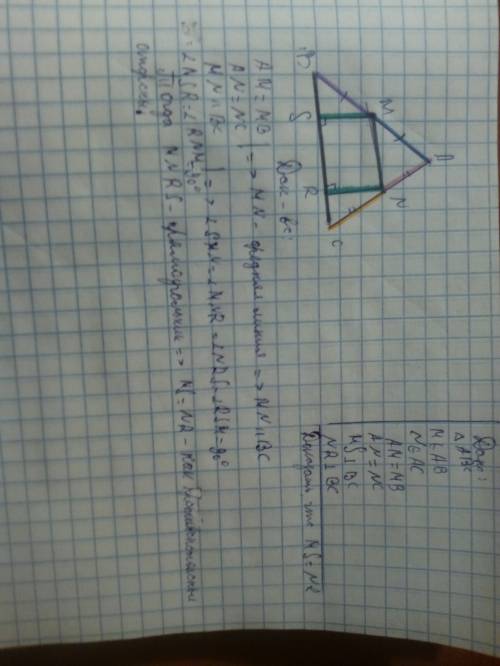 Дано:
△ABC
M∈AB
N∈AC
AM=MB
AN=NC
MS⊥BC
NR⊥BC
Доказать что MS=NR
A
M
N
B
S
R
C
Док-во:
AM=MB
AN=NC | => MN-средняя линия => MN||BC
MN||BC | => ∠SMN=∠MNR=∠NRS=∠RSM=90°
=∠NSR=∠RNM=90°
Тогда MNRS-прямоугольник => MS=NR-как
отрезки.